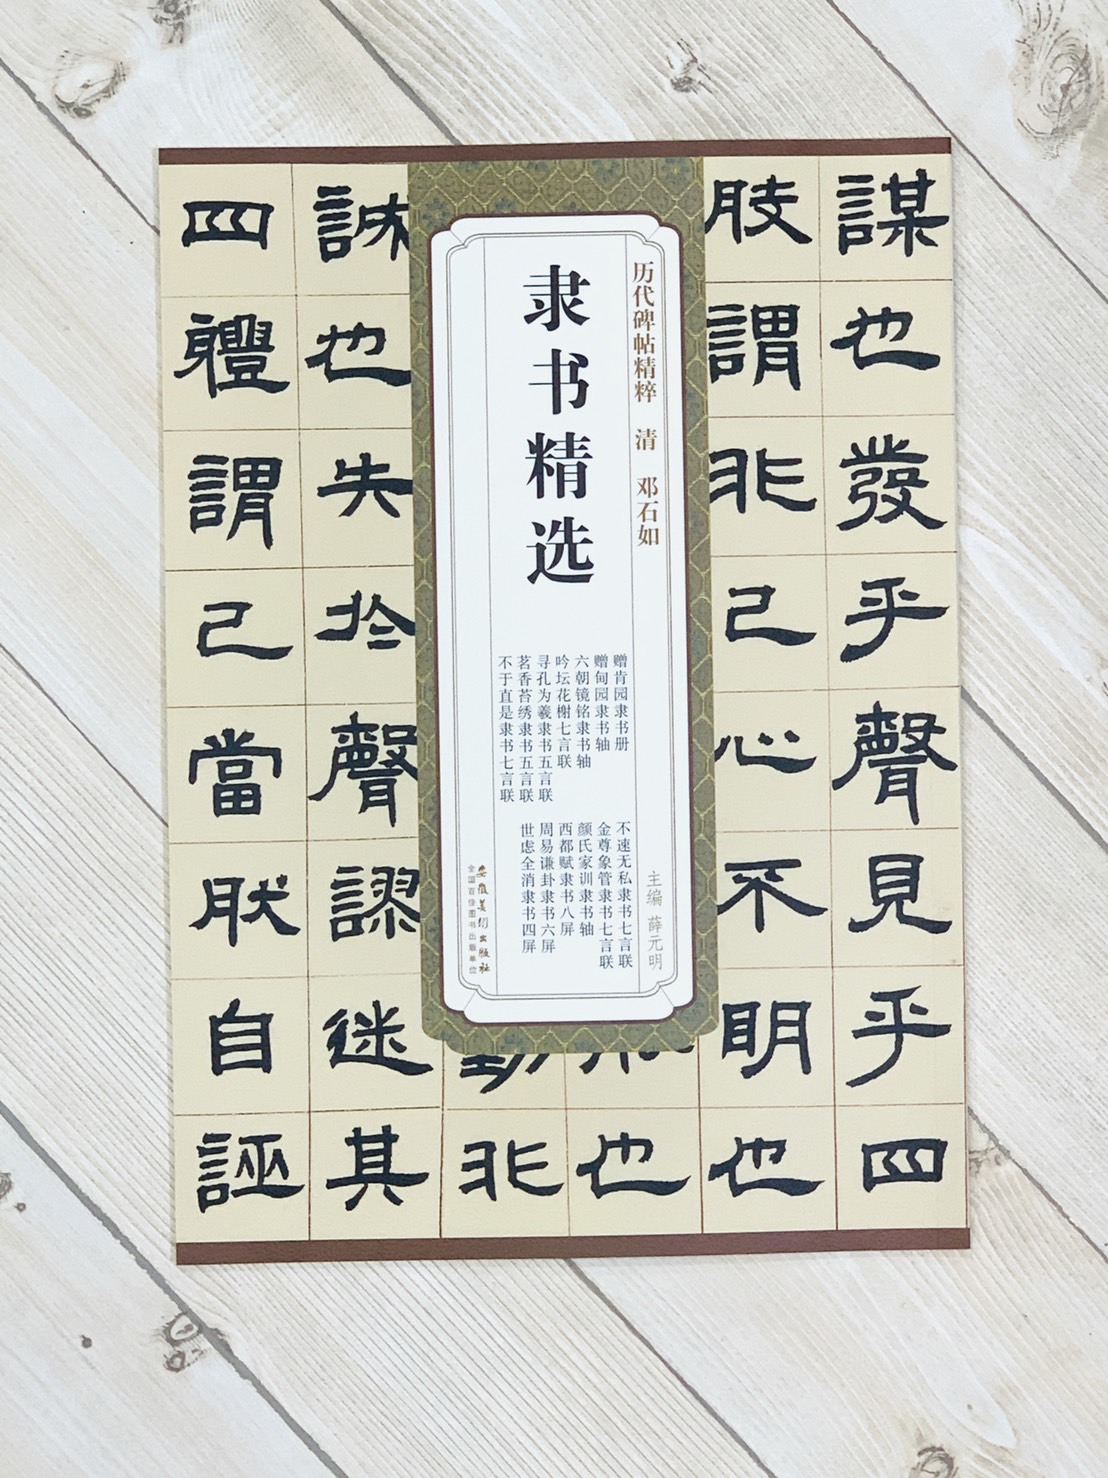 謀也發乎聲見乎四
肢謂非己心不明也
也
非
誠也失於聲謬迷其
四體謂己當肰自誣
历代碑帖精粹 清 邓石如
隶书精选
赠肯园隶书册
赠甸园隶书轴
六朝镜铭隶书轴
吟坛花榭七言联
寻孔为羲隶书五言联
茗香苔绣隶书五言联
不于直是隶书七言联
不速无私隶书七言联
金尊象管隶书七言联
颜氏家训隶书轴
西都赋隶书八屏
周易谦卦隶书六屏
世虑全消隶书四屏
主编 薛元明
安徽美术出版社
全国百佳图书出版单位